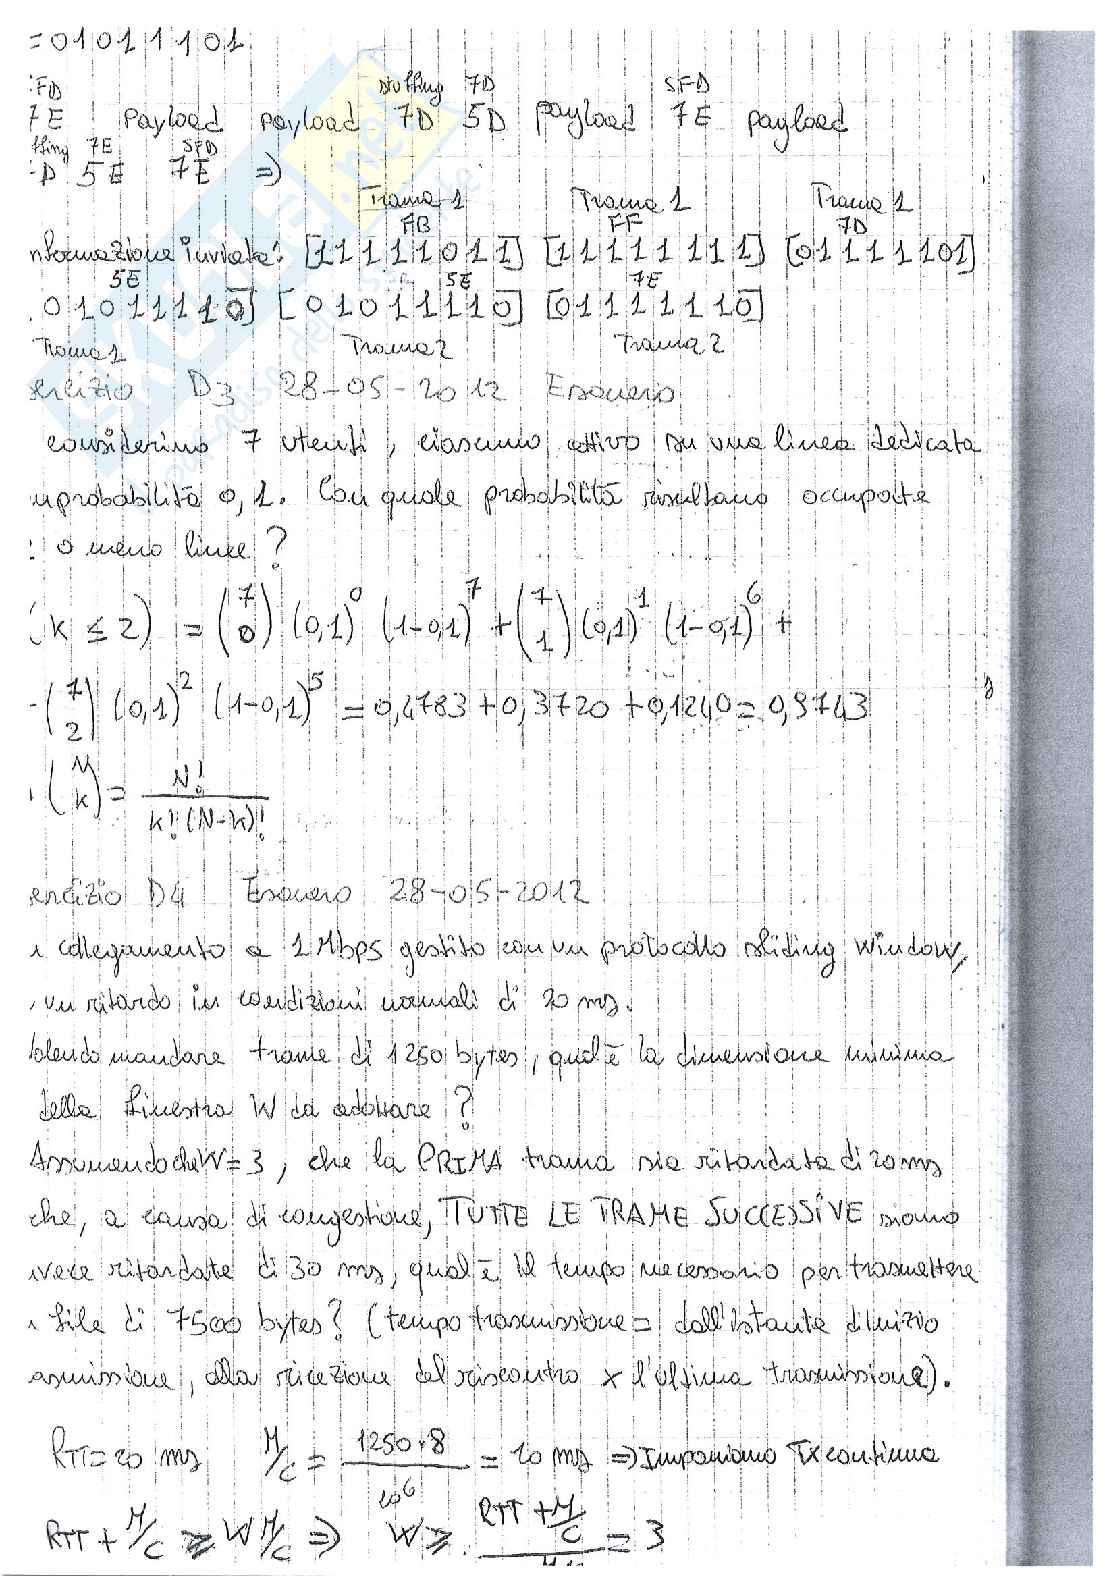 =01011101
FD stuffing 7D SFD
7E payload payload 7D 5D payload 7E payload
ffing 7E SFD
D 5E 7E =>
Trama 1 Trama 1 Trama 1
FB FF 7D
nformazione inviata: [11111011] [11111111] [01111101]
5E 5E 7E
01011110] [01011110] [01111110]
Trama 1 Trama 2 Trama 2
sercizio D3 28-05-2012 Esonero
considerino 7 utenti, ciascuno attivo su una linea dedicata
n probabilità 0,1. Con quale probabilità risultano occupate
o meno linee?
(k ≤ 2) = (7 0) (0,1)^0 (1-0,1)^7 + (7 1) (0,1)^1 (1-0,1)^6 +
(7 2) (0,1)^2 (1-0,1)^5 = 0,4783+0,3720+0,1240=0,9743
(N k) = N! / k!(N-k)!
ercizio D4 Esonero 28-05-2012
collegamento a 1 Mbps gestito con un protocollo sliding window,
un ritardo in condizioni normali di 20 ms.
olendo mandare trame di 1250 bytes, qual è la dimensione minima
della finestra W da adottare?
Assumendo che W=3, che la PRIMA trama sia ritardata di 20 ms
che, a causa di congestione, TUTTE LE TRAME SUCCESSIVE siano
vece ritardate di 30 ms, qual è il tempo necessario per trasmettere
file di 7500 bytes? (tempo trasmissione = dall'istante di inizio
asmissione, alla ricezione del riscontro x l'ultima trasmissione).
RTT=20 ms M/C = 1250·8 / 10^6 = 10 ms => Imponiamo Tx continua
RTT + M/C ≥ W M/C => W ≥ RTT + M/C = 3